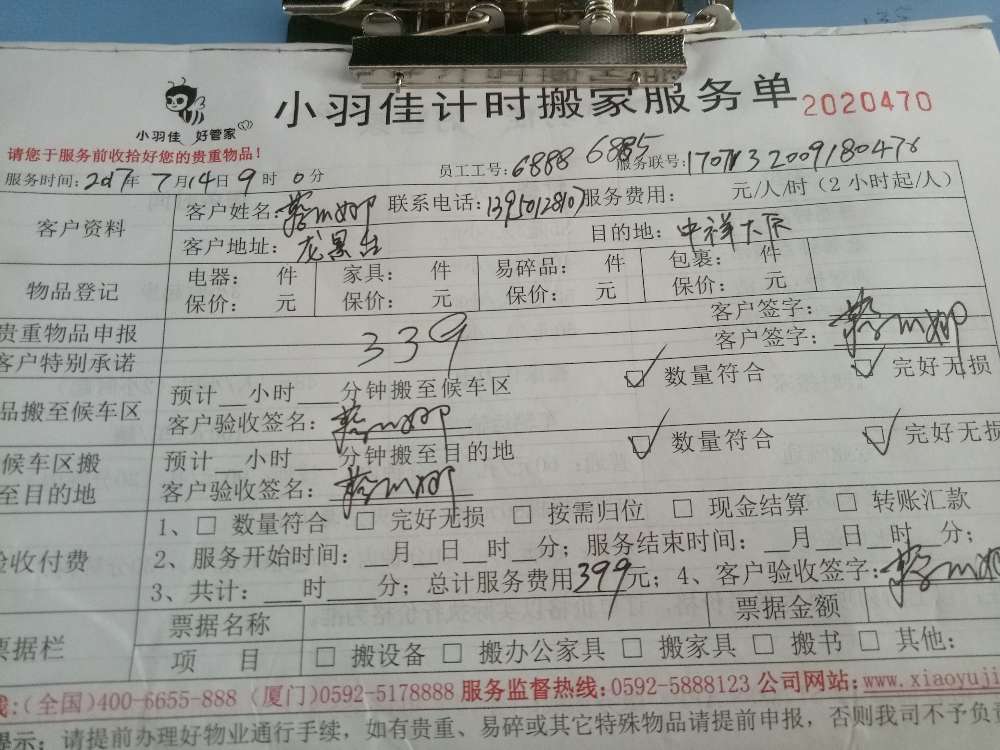 小羽佳计时搬家服务单 2020470
小羽佳 好管家
请您于服务前收拾好您的贵重物品!
服务时间:2017年7月14日9时0分 员工工号:6888 6885 服务联号:
客户资料 客户姓名: 联系电话: 服务费用: 元/人/时(2小时起/人)
客户地址: 目的地:中祥大厦
物品登记 电器: 件 家具: 件 易碎品: 件 包裹: 件
保价: 元 保价: 元 保价: 元 保价: 元
贵重物品申报 339 客户签字:
客户特别承诺 客户签字:
品搬至候车区 预计__小时___分钟搬至候车区 ☑ 数量符合 ☑ 完好无损
客户验收签名:
候车区搬 预计__小时___分钟搬至目的地 ☑ 数量符合 ☑ 完好无损
至目的地 客户验收签名:
验收付费 1、□ 数量符合 □ 完好无损 □ 按需归位 □ 现金结算 □ 转账汇款
2、服务开始时间:__月__日__时__分;服务结束时间:__月__日__时__分;
3、共计:___时____分;总计服务费用399元;4、客户验收签字:
票据栏 票据名称 票据金额
项 目 □ 搬设备 □ 搬办公家具 □ 搬家具 □ 搬书 □ 其他:
线:(全国)400-6655-888 (厦门)0592-5178888 服务监督热线:0592-5888123 公司网站:www.xiaoyuji
提示:请提前办理好物业通行手续,如有贵重、易碎或其它特殊物品请提前申报,否则我司不予负